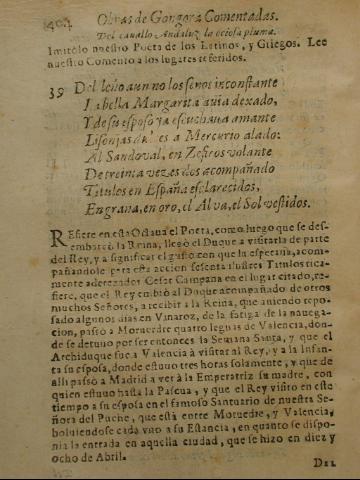 404 Obras de Gongora Comentadas.
Del cauallo Andaluz la ociosa pluma.
Imitólo nuestro Poeta de los Latinos, y Griegos. Lee
nuestro Comento a los lugares referidos.
39 Del leño aun no los señores inconstante
La bella Margarita auia dexado,
Y de su esposo ya escuchaua amante
Lisonjas dulces a Mercurio alado:
Al Sandoual, en Zefiros volante
De treinta vezes dos acompañado
Titulos en España esclarecidos,
En grana, en oro, el Alua, el Sol vestidos.
REfiere en esta Octaua el Poeta, como luego que se des-
embarcò la Reina, llegò el Duque a visitarla de parte
del Rey, y a significar el gusto con que la esperaua, acom-
pañandole para esta accion sesenta ilustres Titulos rica-
mente aderezados Cesar Campana en el lugar citado, re-
fiere, que el Rey embiò al Duque acompañado de otros
muchos Señores, a recibir a la Reina, que auiendo repo-
sado algunos dias en Vinaroz, de la fatiga de la nauega-
cion, passò a Moruedre quatro leguas de Valencia, don-
de se detuuo por ser entonces la Semana Santa, y que el
Archiduque fue a Valencia à visitar al Rey, y a la Infan-
ta su esposa, donde estuuo tres horas solamente, y que de
alli passò a Madrid a ver à la Emperatriz su madre, con
quien estuuo hasta la Pascua, y que el Rey visito en este
tiempo a su esposa en el famoso Santuario de nuestra Se-
ñora del Puche, que està entre Moruedre, y Valencia,
boluiendose cada vno a su Estancia, en quanto se dispo-
nia la entrada en aquella ciudad, que se hizo en diez y
ocho de Abril.
DEL